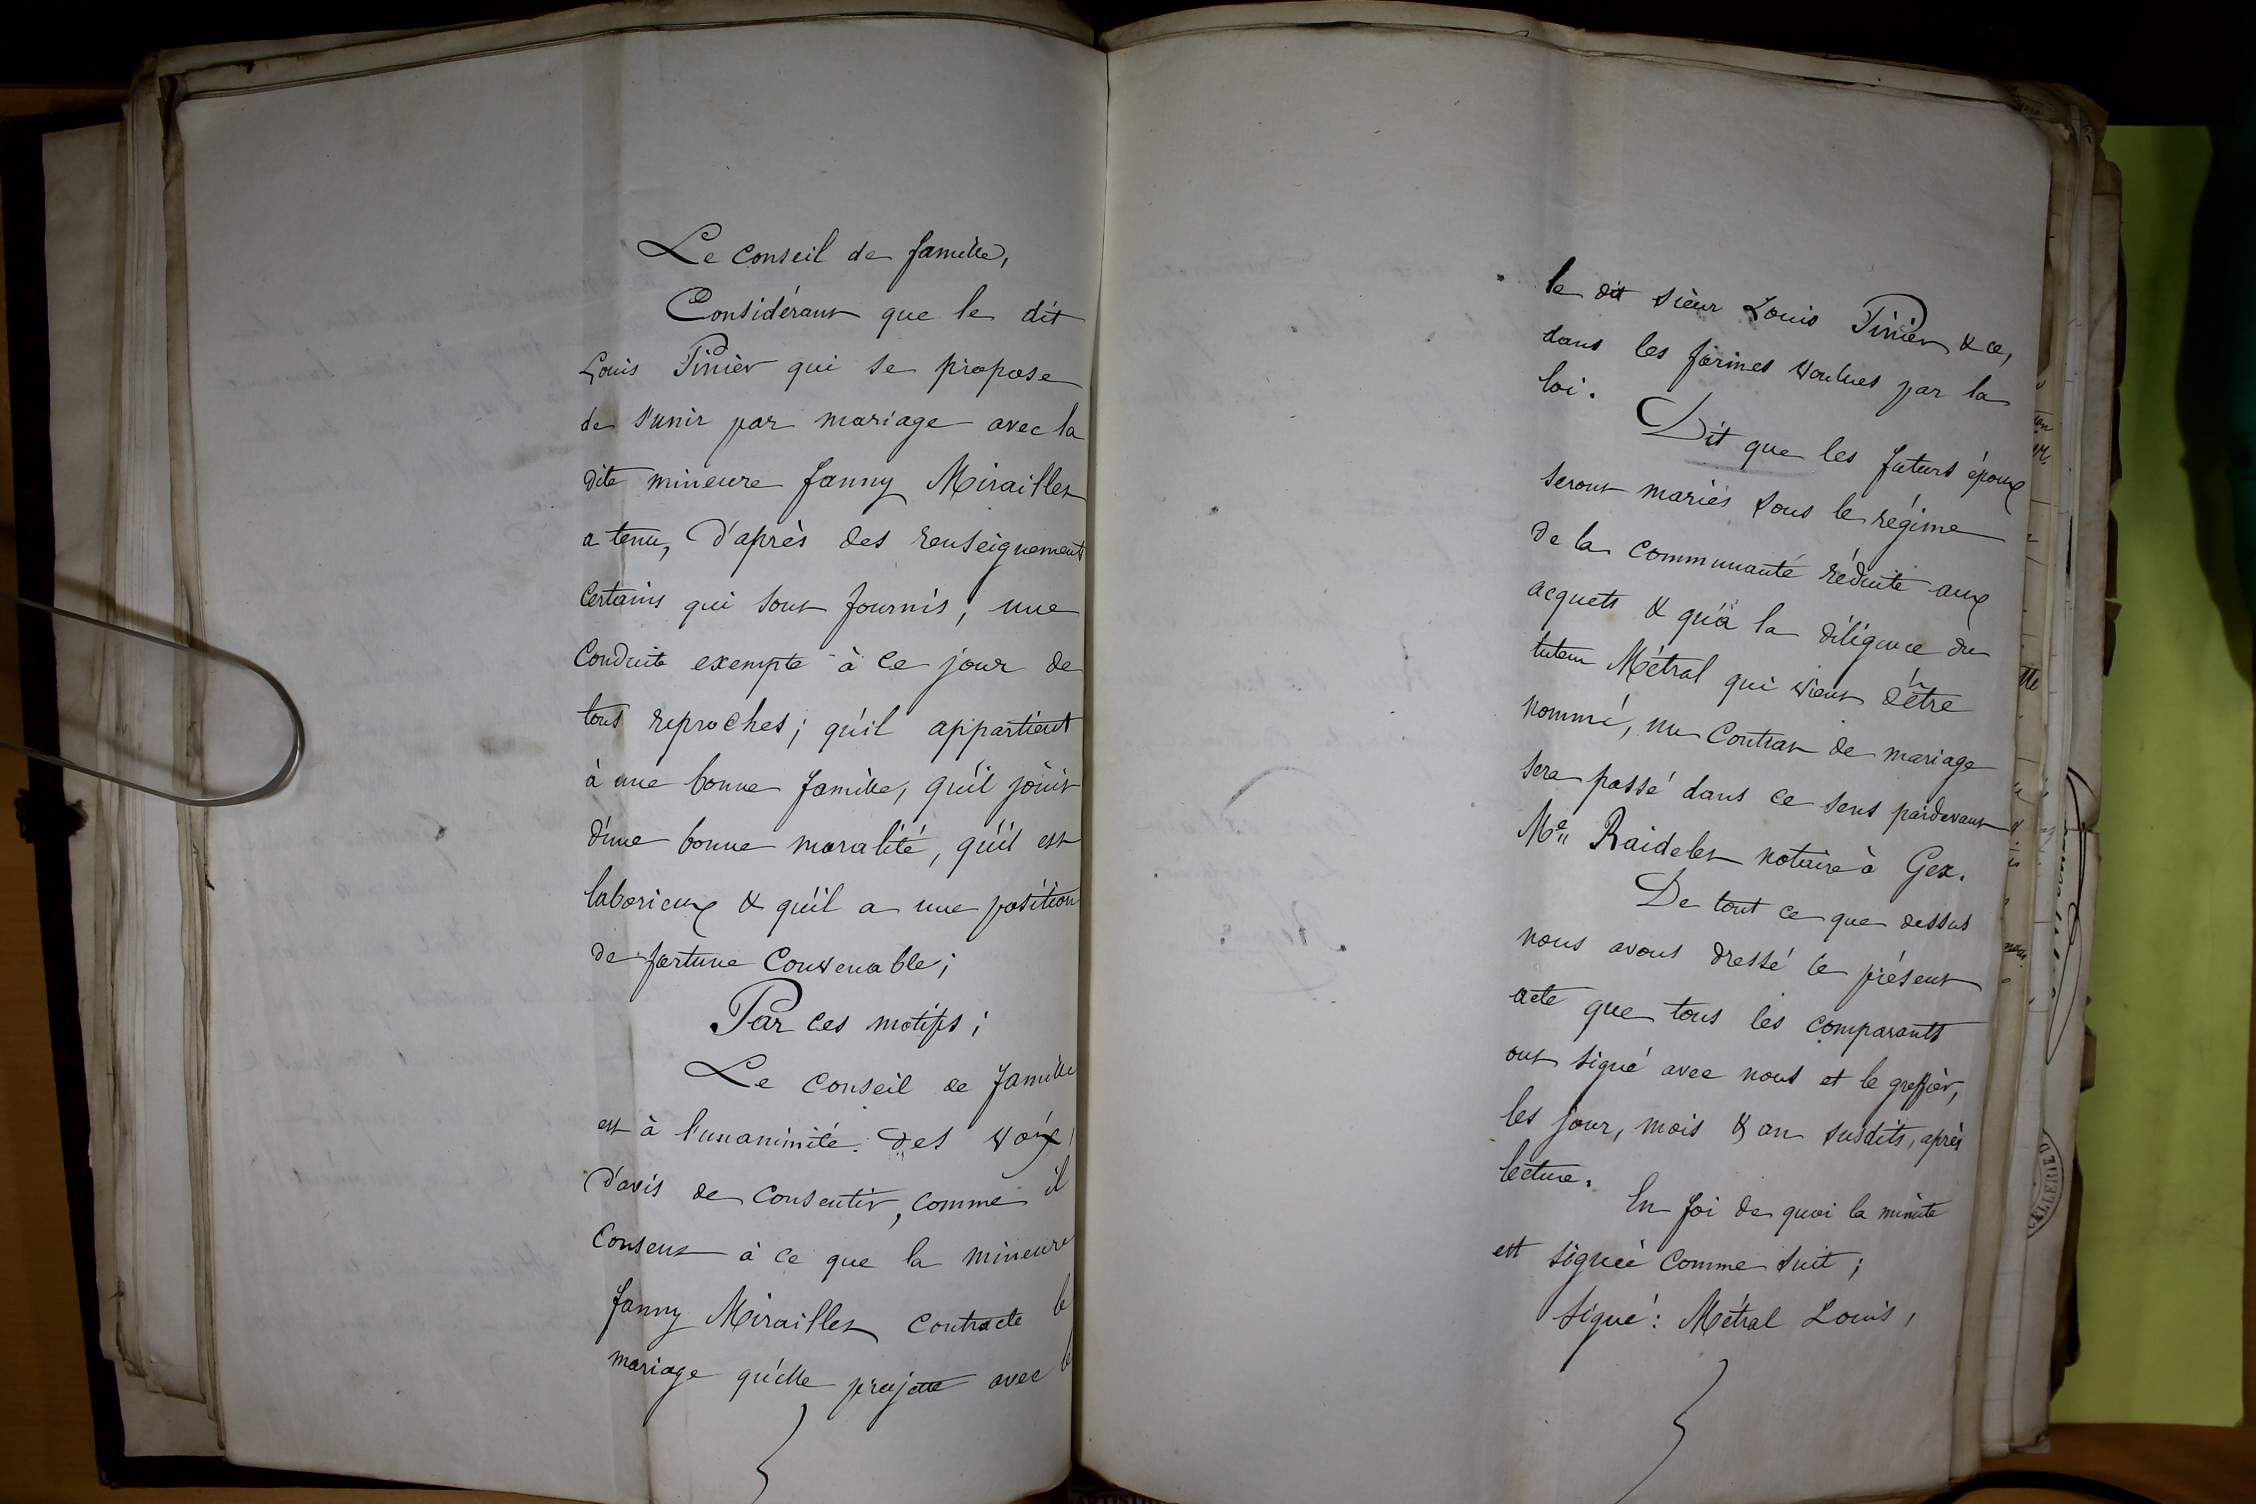 Le conseil de famille,
Considérant que le dit
Louis Pinier qui se propose
de s'unir par mariage avec la
dite mineure fanny Miraillet
a tenu, d'après des renseignements
certains qui sont fournis, une
conduite exempte à ce jour de
tous reproches; qu'il appartient
à une bonne famille, qu'il jouit
d'une bonne moralité, qu'il est
laborieux & qu'il a une position
de fortune convenable;
Par ces motifs;
Le conseil de famille
est à l'unanimité des voix,
d'avis de consentir, comme il
consent à ce que la mineure
fanny Miraillet contracte le
mariage qu'elle projette avec le
le dit sieur Louis Pinier & ce,
dans les formes voulues par la
loi.
Dit que les futurs époux
seront mariés sous le régime
de la communauté réduite aux
acquets & qu'à la diligence du
tuteur Métral qui vient d'être
nommé, un contrat de mariage
sera passé dans ce sens pardevant
Me Raidelet notaire à Gex.
De tout ce que dessus
nous avons dressé le présent
acte que tous les comparants
ont signé avec nous et le greffier,
les jour, mois & an susdits, après
lecture.
En foi de quoi la minute
est signée comme suit;
signé: Métral Louis,